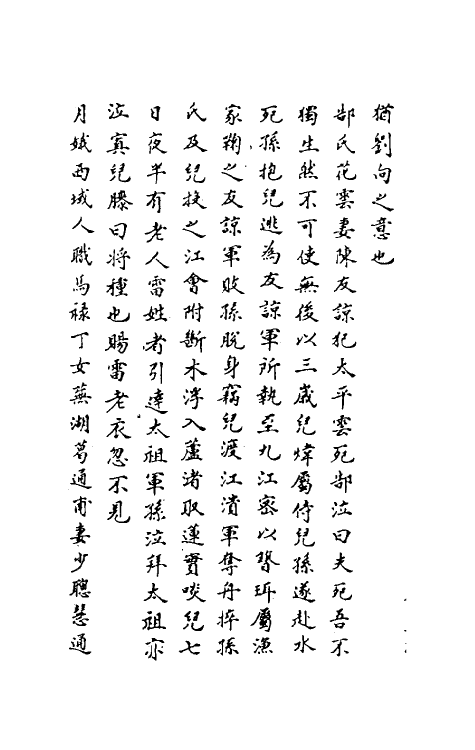 猶劉向之意也
郜氏花雲妻陳友諒犯太平雲死郜泣曰夫死吾不
獨生然不可使無後以三歲兒煒屬侍兒孫遂赴水
死孫抱兒逃為友諒軍所執至九江密以簪珥屬漁
家鞠之友諒軍敗孫脫身竊兒渡江潰軍奪舟捽孫
氏及兒投之江會附斷木浮入蘆渚取蓮實啖兒七
日夜半有老人雷姓者引達太祖軍孫泣拜太祖亦
泣寘兒膝曰將種也賜雷老衣忽不見
月娥西域人職馬祿丁女蕪湖葛通甫妻少聰慧通